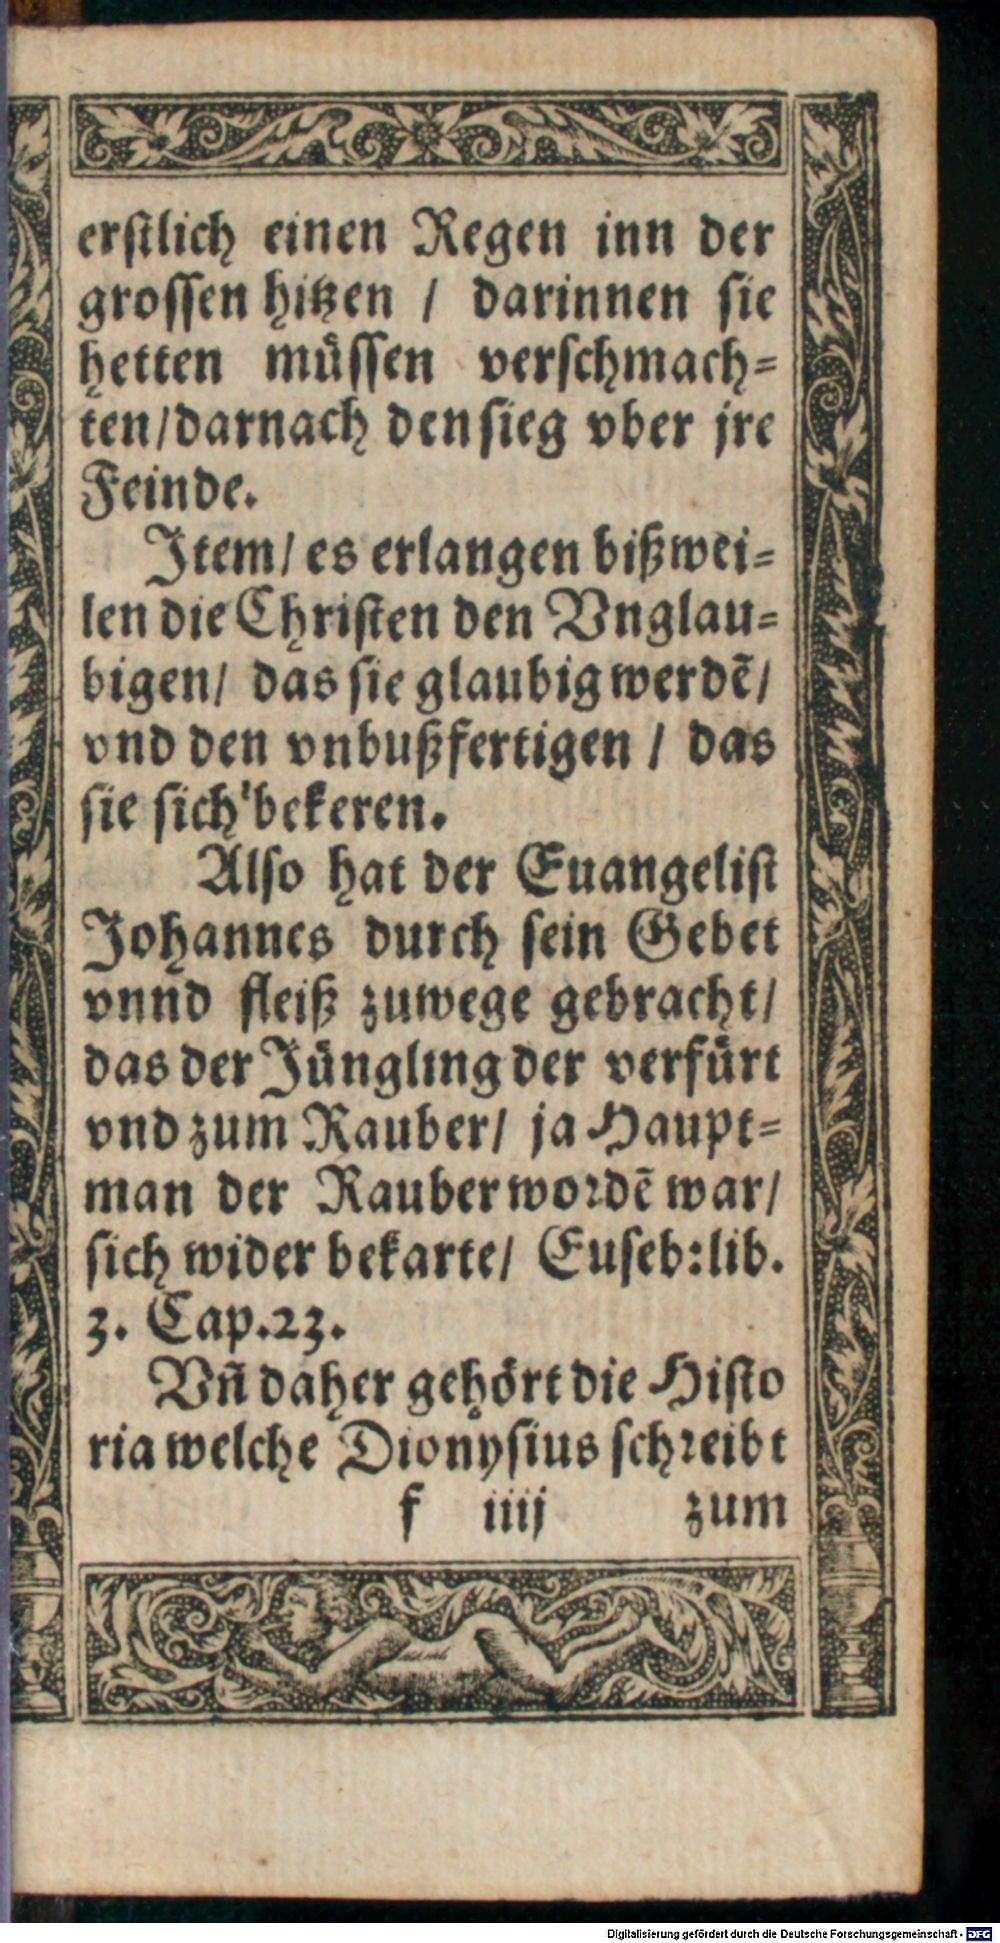 erstlich einen Regen inn der
grossen hitzen / darinnen sie
hetten müssen verschmach=
ten/darnach den sieg vber jre
Feinde.
Item/ es erlangen bißwei=
len die Christen den Vnglau=
bigen/ das sie glaubig werdē/
vnd den vnbußfertigen / das
sie sich bekeren.
Also hat der Euangelist
Johannes durch sein Gebet
vnnd fleiß zuwege gebracht/
das der Jüngling der verfürt
vnd zum Rauber/ ja Haupt=
man der Rauber wordē war/
sich wider bekarte/ Euseb:lib.
3. Cap.23.
Vñ daher gehört die Histo
ria welche Dionysius schreibt
f iiij zum
Digitalisierung gefördert durch die Deutsche Forschungsgemeinschaft - DFG